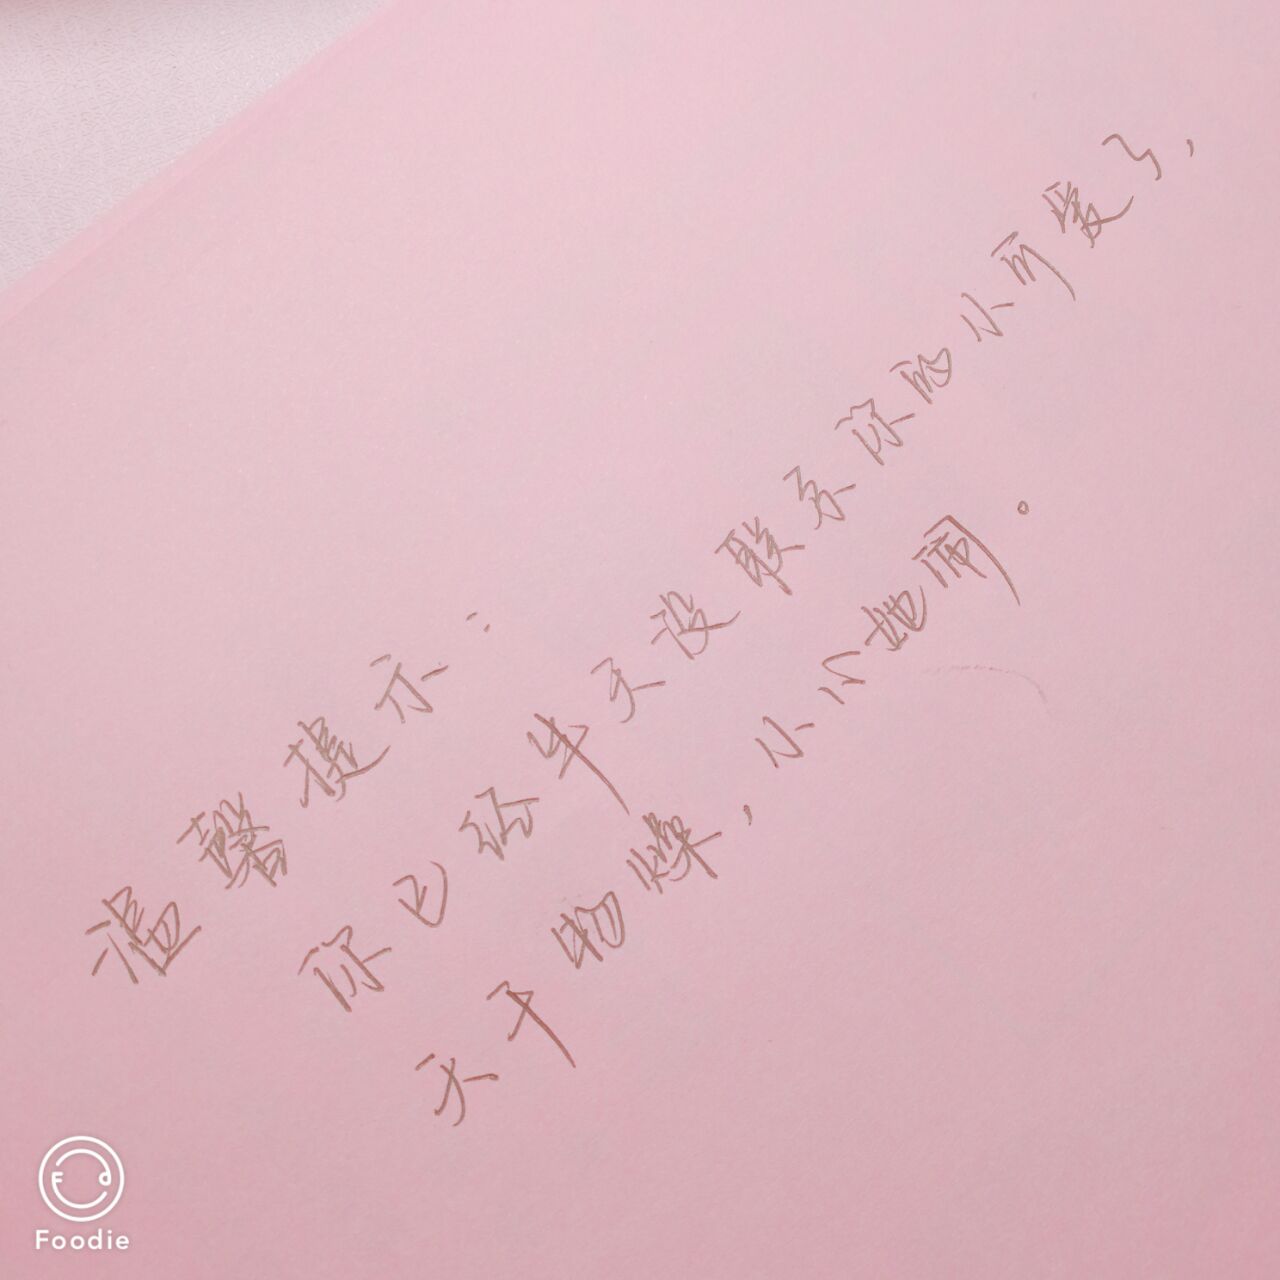 温馨提示:
你已经半天没联系你的小可爱了,
天干物燥,小小地闹。
Foodie